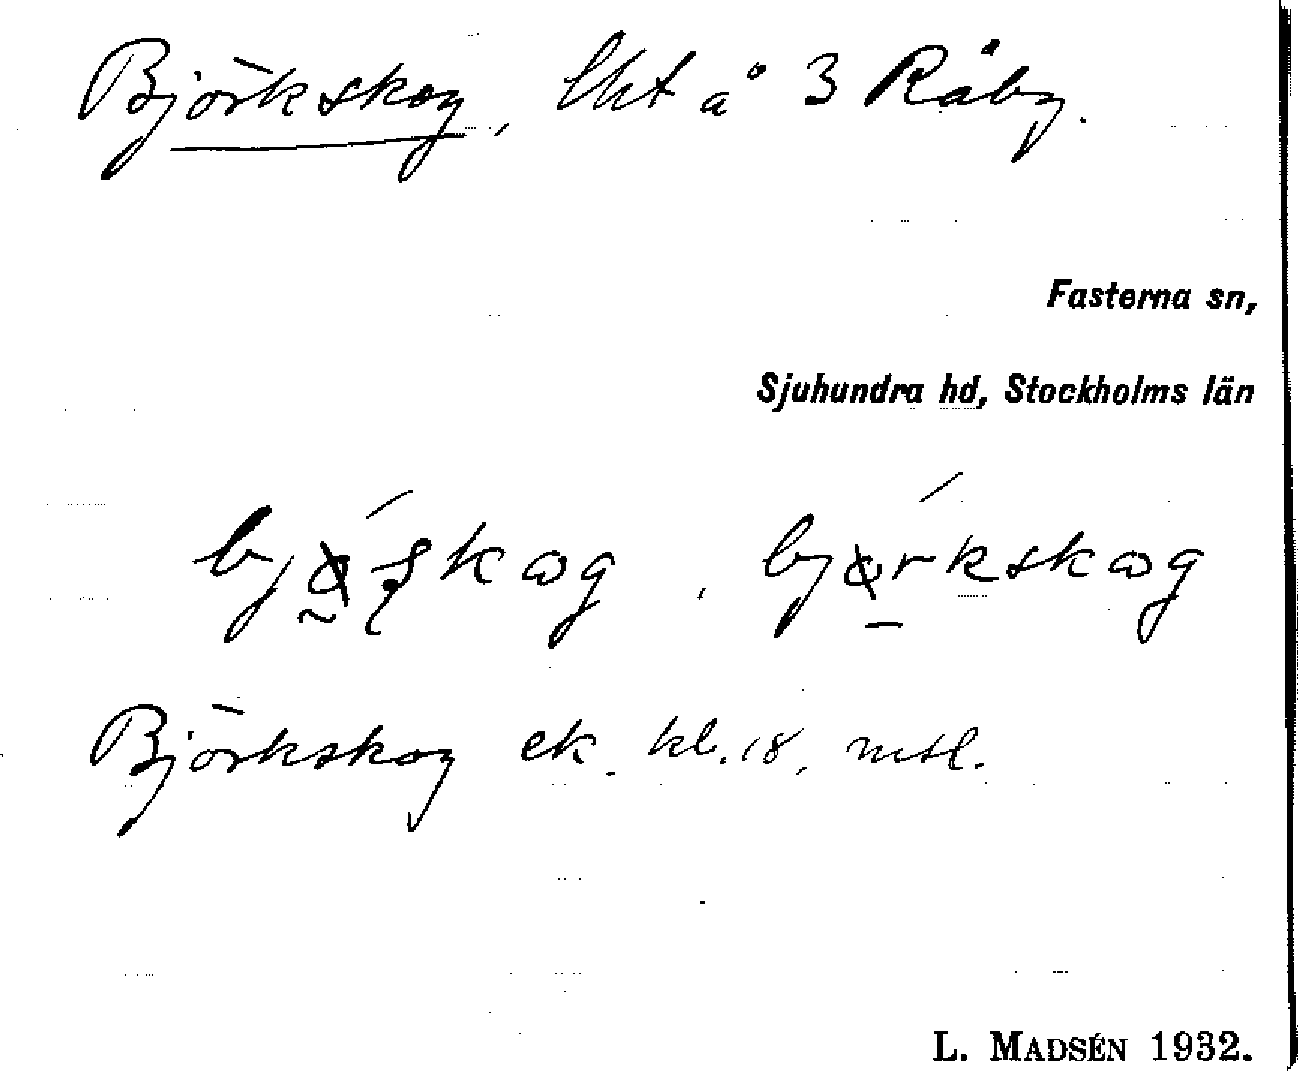 Björkskog, lht å 3 Råby.
Fasterna sn,
Sjuhundra hd, Stockholms län
bjørkskog
Björkskog ek. kl. 18, mtl.
L. MADSÉN 1932.